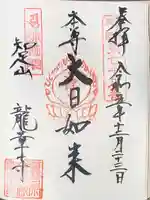 奉拝 令和五年十二月二十三日
本尊 大日如来
知足山
龍華寺